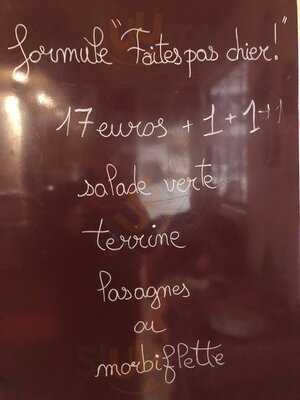 formule "Faites pas chier!"
17 euros + 1 + 1 + 1
salade verte
terrine
lasagnes
ou
morbiflette